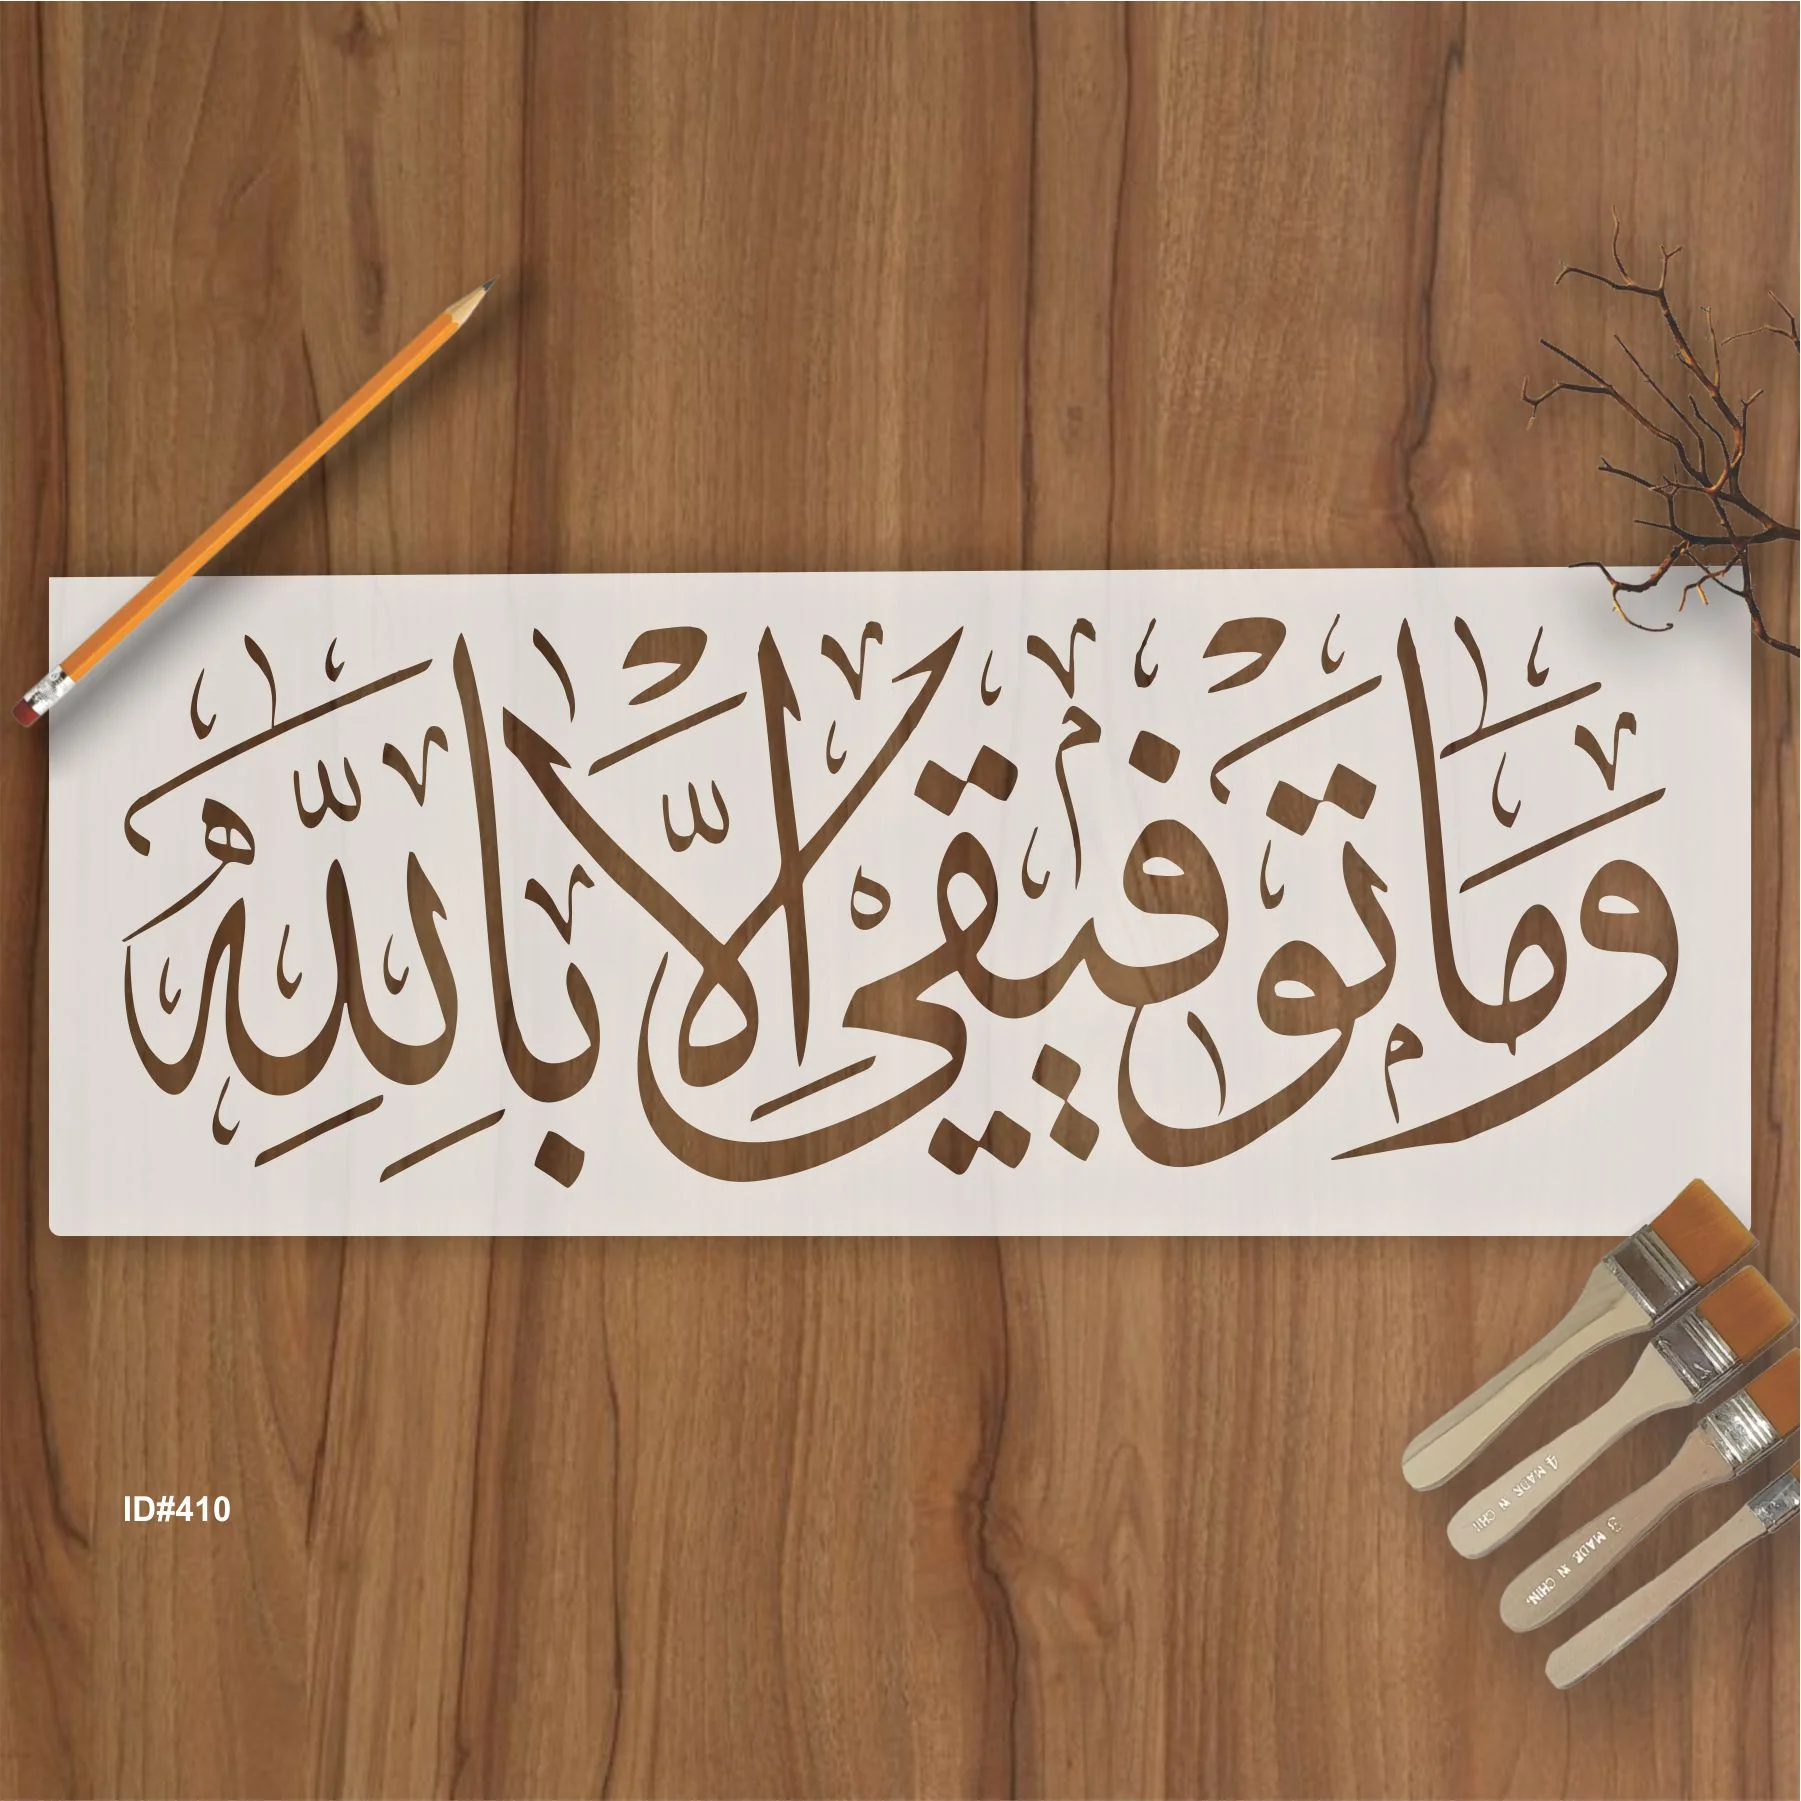 وَمَا تَوْفِيقِي إِلَّا بِاللَّهِ
ID#410
4 MADE IN CHI
3 MADE IN CHIN.